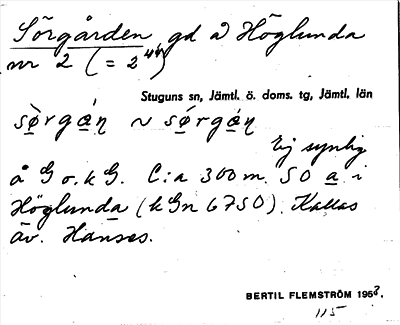 Sörgården gd i Höglunda
nr 2 (= 2⁴⁴)
Stuguns sn, Jämtl. ö. doms. tg, Jämtl. län
sø̀rgáṇ ~ sǿrgáṇ
Ej synlig
å G o. k G. C:a 300 m. SO a i
Höglunda (k Gn 6750). Kallas
äv. Hanses.
BERTIL FLEMSTRÖM 1963.
115